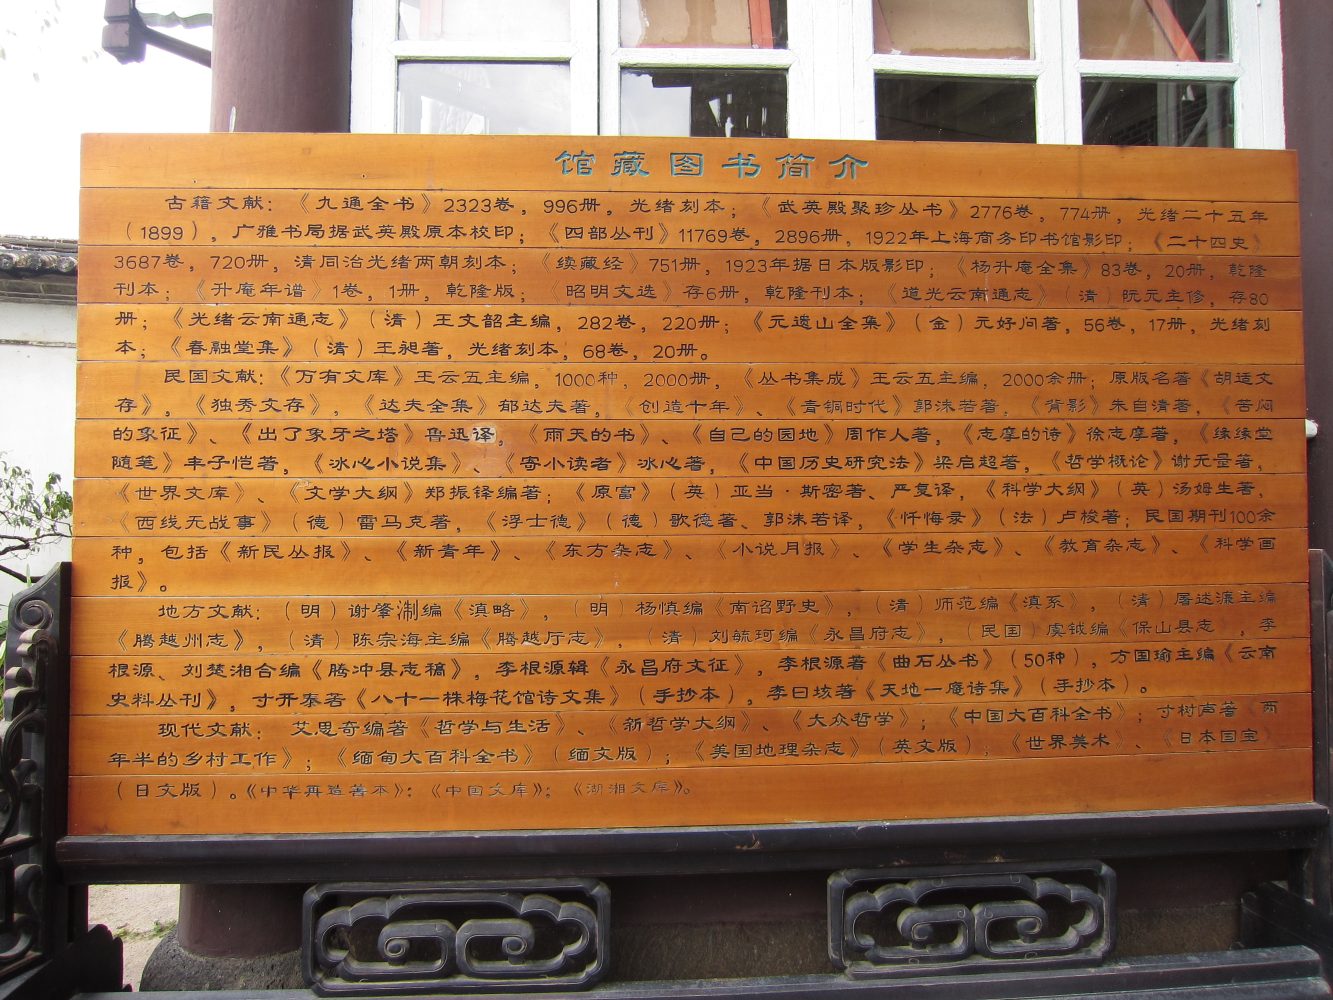 馆藏图书简介
古籍文献：《九通全书》2323卷，996册，光绪刻本；《武英殿聚珍丛书》2776卷，774册，光绪二十五年
（1899），广雅书局据武英殿原本校印；《四部丛刊》11769卷，2896册，1922年上海商务印书馆影印；《二十四史》
3687卷，720册，清同治光绪两朝刻本；《续藏经》751册，1923年据日本版影印；《杨升庵全集》83卷，20册，乾隆
刊本；《升庵年谱》1卷，1册，乾隆版；《昭明文选》存6册，乾隆刊本；《道光云南通志》（清）阮元主修，存80
册；《光绪云南通志》（清）王文韶主编，282卷，220册；《元遗山全集》（金）元好问著，56卷，17册，光绪刻
本；《春融堂集》（清）王昶著，光绪刻本，68卷，20册。
民国文献：《万有文库》王云五主编，1000种，2000册，《丛书集成》王云五主编，2000余册；原版名著《胡适文
存》，《独秀文存》，《达夫全集》郁达夫著，《创造十年》、《青铜时代》郭沫若著，《背影》朱自清著，《苦闷
的象征》、《出了象牙之塔》鲁迅译，《雨天的书》、《自己的园地》周作人著，《志摩的诗》徐志摩著，《缘缘堂
随笔》丰子恺著，《冰心小说集》、《寄小读者》冰心著，《中国历史研究法》梁启超著，《哲学概论》谢无量著，
《世界文库》、《文学大纲》郑振铎编著；《原富》（英）亚当·斯密著、严复译，《科学大纲》（英）汤姆生著，
《西线无战事》（德）雷马克著，《浮士德》（德）歌德著、郭沫若译，《忏悔录》（法）卢梭著；民国期刊100余
种，包括《新民丛报》、《新青年》、《东方杂志》、《小说月报》、《学生杂志》、《教育杂志》、《科学画
报》。
地方文献：（明）谢肇淛编《滇略》，（明）杨慎编《南诏野史》，（清）师范编《滇系》，（清）屠述濂主编
《腾越州志》，（清）陈宗海主编《腾越厅志》，（清）刘毓珂编《永昌府志》，（民国）虞钺编《保山县志》，李
根源、刘楚湘合编《腾冲县志稿》，李根源辑《永昌府文征》，李根源著《曲石丛书》（50种），方国瑜主编《云南
史料丛刊》，寸开泰著《八十一株梅花馆诗文集》（手抄本），李曰垓著《天地一庵诗集》（手抄本）。
现代文献：艾思奇编著《哲学与生活》、《新哲学大纲》、《大众哲学》；《中国大百科全书》；寸树声著《两
年半的乡村工作》；《缅甸大百科全书》（缅文版）；《美国地理杂志》（英文版）；《世界美术》、《日本国宝》
（日文版）。《中华再造善本》；《中国文库》；《湖湘文库》。